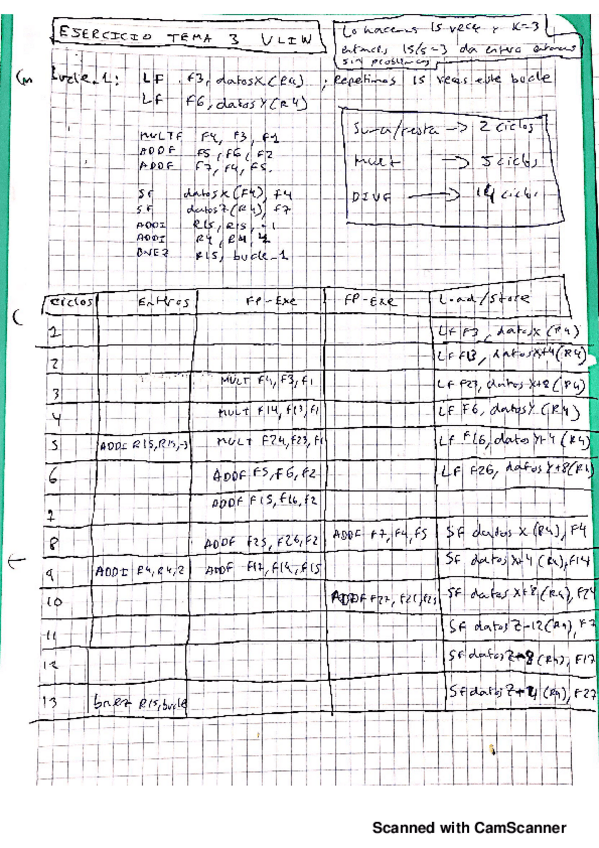 EJERCICIO TEMA 3 VLIW
Lo hacemos 15 veces y k=3
entonces 15/3=3 da entero entonces
sin problemas
bucle_1: LF F3, datosX(R4) ; repetimos 15 veces este bucle
LF F6, datosY(R4)
MULTF F4, F3, F1
ADDF F5, F6, F2
ADDF F7, F4, F5
SF datosX(R4), F4
SF datosZ(R4), F7
ADDI R15, R15, -1
ADDI R4, R4, 4
BNEZ R15, bucle_1
Suma/resta -> 2 ciclos
Mult -> 5 ciclos
DIVF -> 14 ciclos
Ciclos Enteros FP-Exe FP-Exe Load/Store
1 LF F3, datosX(R4)
2 LF F13, datosX+4(R4)
3 MULT F4, F3, F1 LF F23, datosX+8(R4)
4 MULT F14, F13, F1 LF F6, datosY(R4)
5 ADDI R15, R15, -3 MULT F24, F23, F1 LF F16, datosY+4(R4)
6 ADDF F5, F6, F2 LF F26, datosY+8(R4)
7 ADDF F15, F16, F2
8 ADDF F25, F26, F2 ADDF F7, F4, F5 SF datosX(R4), F4
9 ADDI R4, R4, 2 ADDF F17, F14, F15 SF datosX+4(R4), F14
10 ADDF F27, F24, F25 SF datosX+8(R4), F24
11 SF datosZ-12(R4), F7
12 SF datosZ-8(R4), F17
13 bnez R15, bucle SF datosZ-4(R4), F27
Scanned with CamScanner